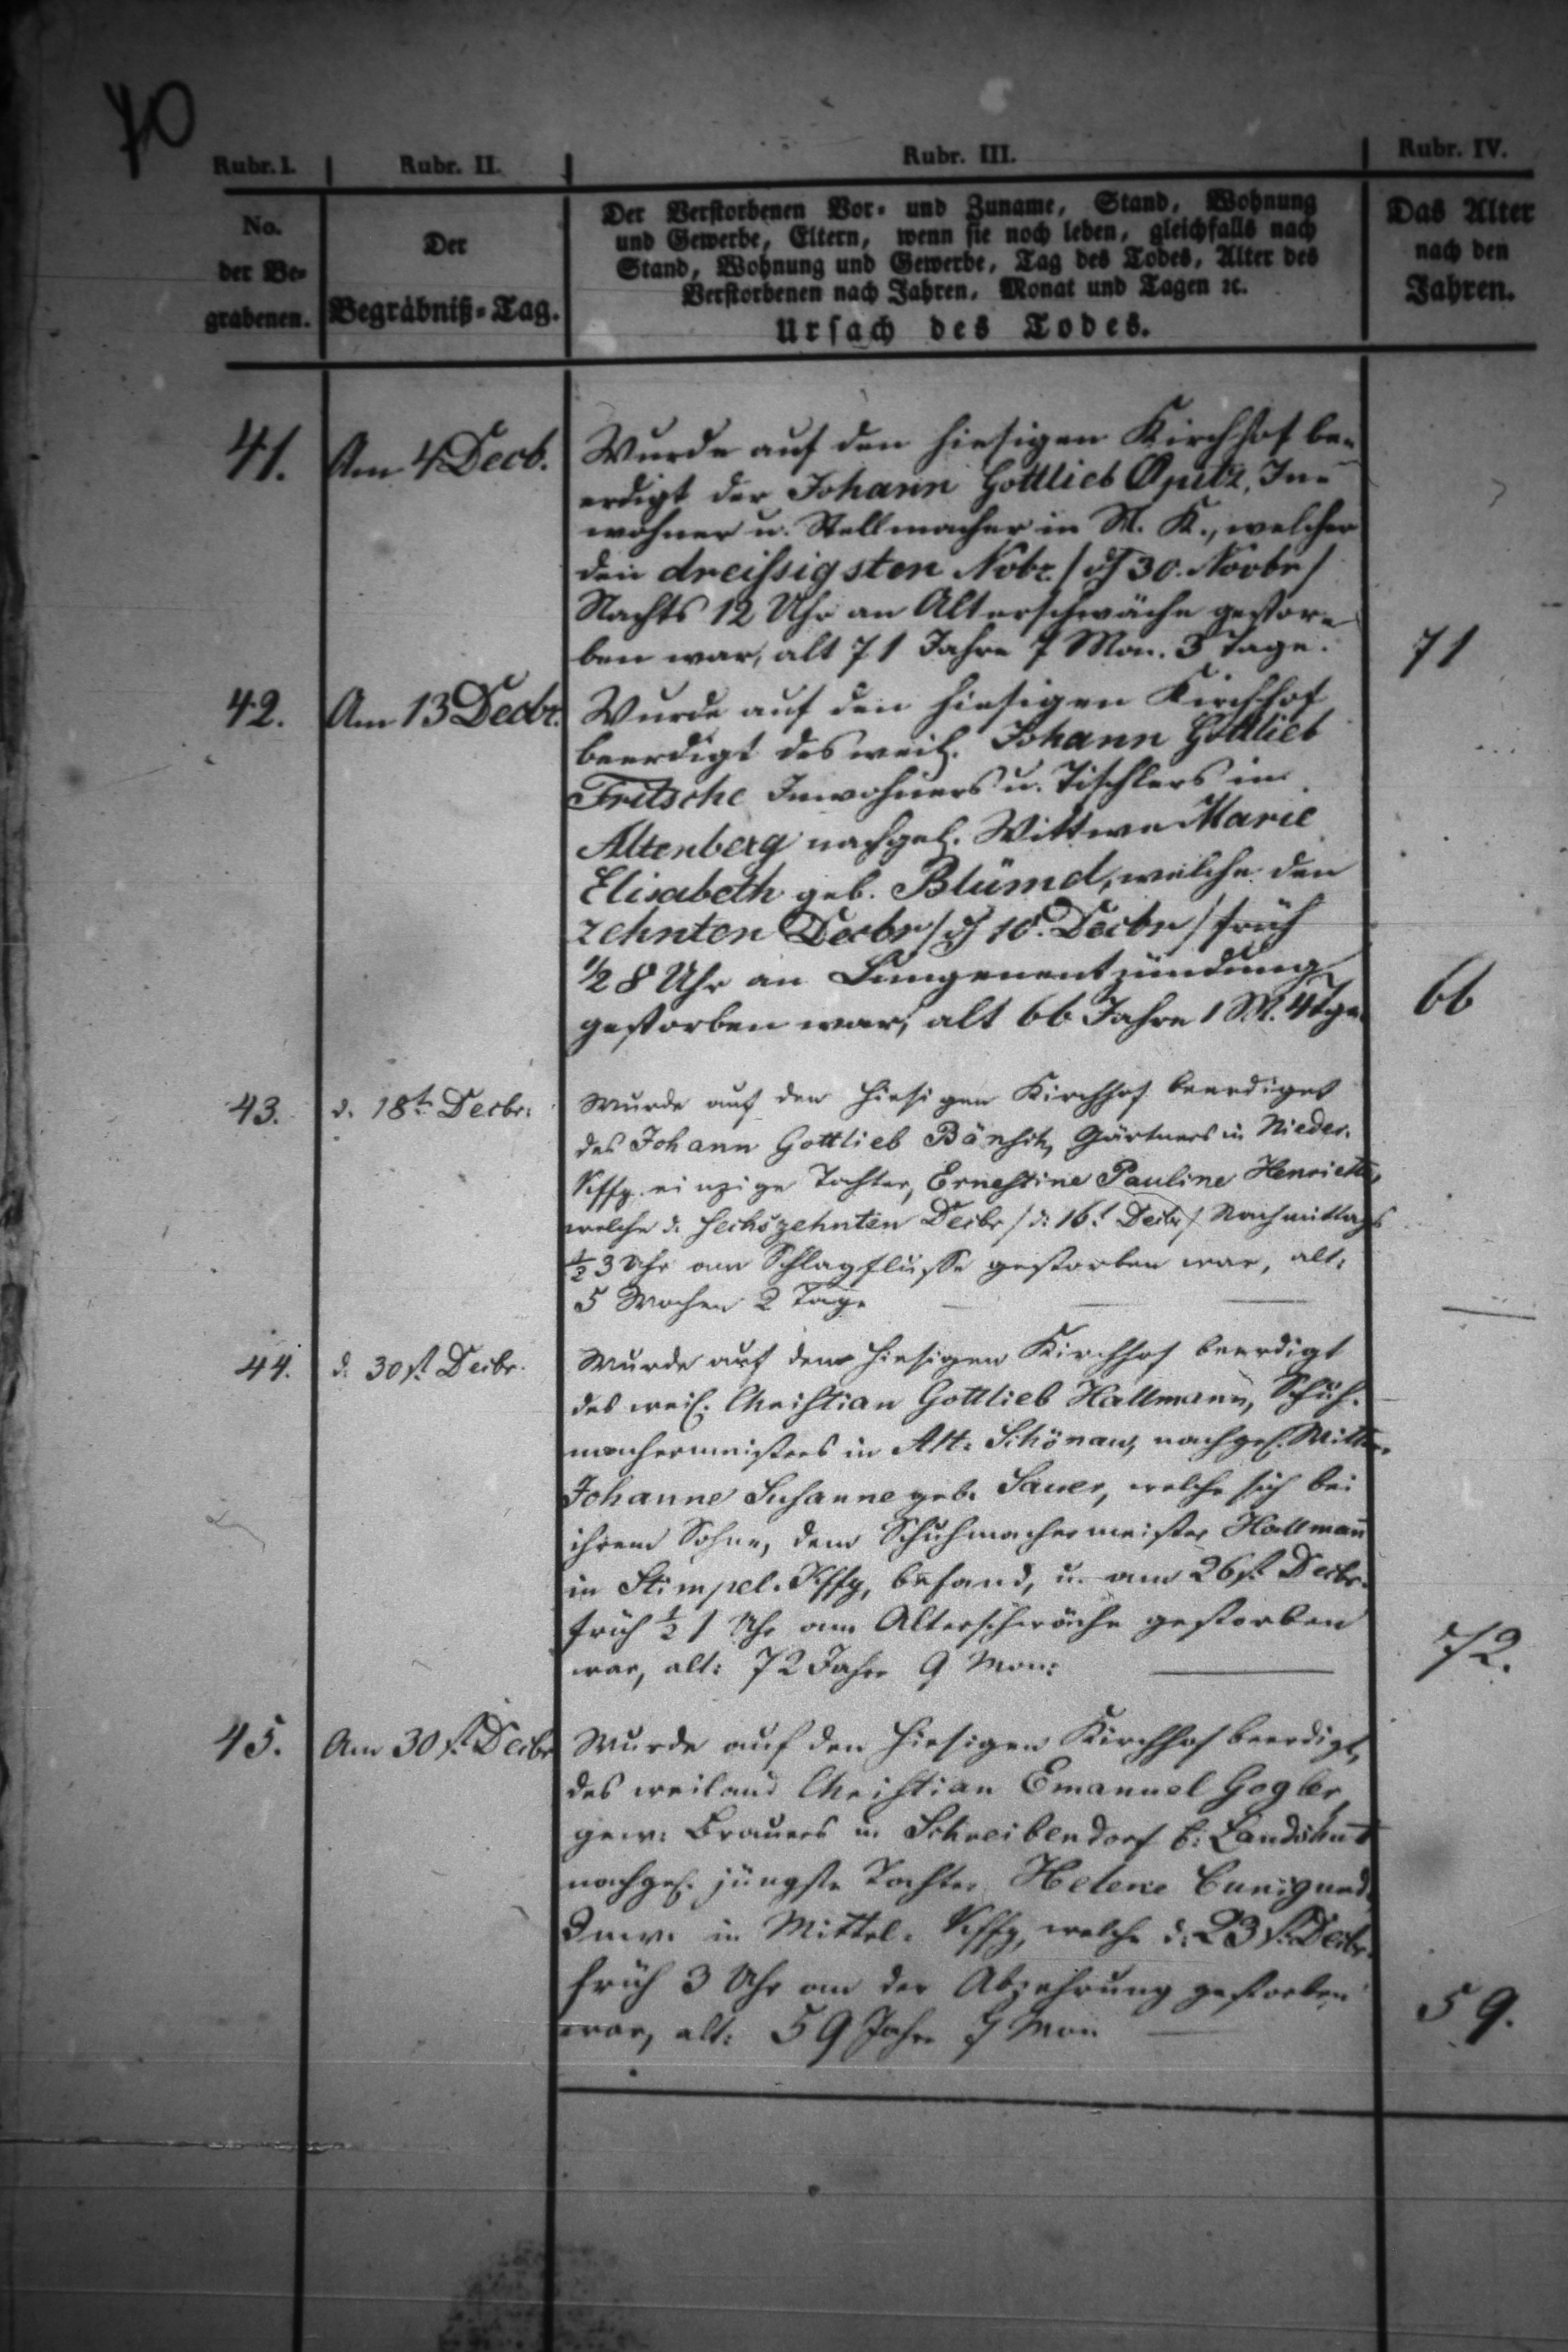 70
Rubr. I. Rubr. II. Rubr. III. Rubr. IV.
No.
der Be-
grabenen.
Der
Begräbniß-Tag.
Der Verstorbenen Vor- und Zuname, Stand, Wohnung
und Gewerbe, Eltern, wenn sie noch leben, gleichfalls nach
Stand, Wohnung und Gewerbe, Tag des Todes, Alter des
Verstorbenen nach Jahren, Monat und Tagen ꝛc.
Ursach des Todes.
Das Alter
nach den
Jahren.
41. Am 4 Decb. Wurde auf den hiesigen Kirchhof be-
erdigt der Johann Gottlieb Opitz, In-
wohner u. Stellmacher in M. K., welcher
den dreissigsten Nobr. / d 30. Novbr /
Nachts 12 Uhr an Alterschwäche gestor-
ben war, alt 71 Jahre 7 Mon. 3 Tage. 71
42. Am 13 Decbr. Wurde auf den hiesigen Kirchhof
beerdigt des weil. Johann Gottlieb
Fritsche Inwohners u. Tischlers in
Altenberg nachgel. Wittwe Marie
Elisabeth geb. Blümel, welche den
zehnten Decbr / d 10. Decbr / früh
1/2 8 Uhr an Lungenentzündung
gestorben war, alt 66 Jahre 1 M. 4 Tge. 66
43. d. 18t. Decbr. Wurde auf den hiesigen Kirchhof beerdiget
des Johann Gottlieb Bänsch, Gärtners in Nieder-
Kffg. einzige Tochter, Ernestine Pauline Henriette,
welche d. sechszehnten Decbr / d: 16t Decbr / Nachmittags
1/2 3 Uhr am Schlagflusse gestorben war, alt:
5 Wochen 2 Tage — — — —
44. d. 30st. Decbr. Wurde auf dem hiesigen Kirchhof beerdigt
des weil. Christian Gottlieb Hallmann, Schuh-
machermeisters in Alt-Schönau, nachgel. Wittwe
Johanne Susanne geb. Sauer, welche sich bei
ihrem Sohne, dem Schuhmachermeister Hallmann
in Stimpel-Kffg, befand, u. am 26st. Decbr.
früh 1/2 1 Uhr am Alterschwäche gestorben
war, alt: 72 Jahre 9 Mon: — 72.
45. Am 30st. Decbr Wurde auf den hiesigen Kirchhof beerdigt,
des weiland Christian Emanuel Gogler
gew. Brauers in Schreibendorf b: Landshut
nachgel. jüngste Tochter Helene Cunigund,
Inw. in Mittel-Kffg, welche d. 23st. Decbr.
früh 3 Uhr an der Abzehrung gestorben
war, alt: 59 Jahr 7 Mon — 59.